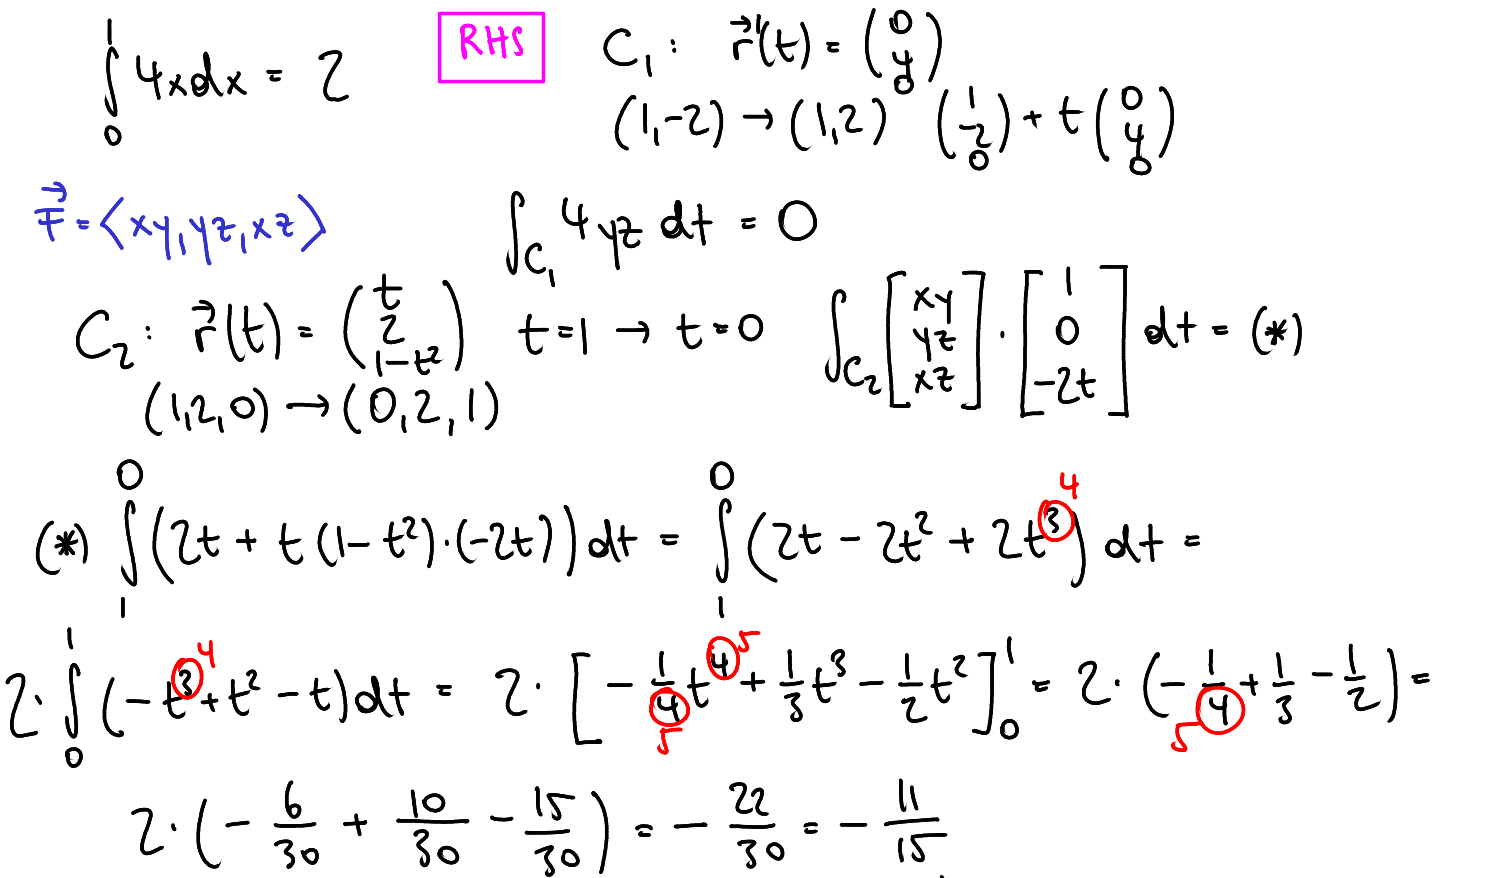 ∫₀¹ 4x dx = 2
RHS
C₁ : r⃗'(t) = (0, 4, 0)
(1,-2) → (1,2) (1, -2, 0) + t (0, 4, 0)
F⃗ = ⟨xy, yz, xz⟩
∫_C₁ 4yz dt = 0
C₂ : r⃗(t) = (t, 2, 1-t²) t=1 → t=0
∫_C₂ [xy, yz, xz] · [1, 0, -2t] dt = (*)
(1,2,0) → (0,2,1)
(*) ∫₁⁰ (2t + t(1-t²)·(-2t)) dt = ∫₁⁰ (2t - 2t² + 2t³) dt =
4
2· ∫₀¹ (-t³ + t² - t) dt = 2· [-1/4 t⁴ + 1/3 t³ - 1/2 t²]₀¹ = 2· (-1/4 + 1/3 - 1/2) =
4 5 5 5
2· (-6/30 + 10/30 - 15/30) = -22/30 = -11/15